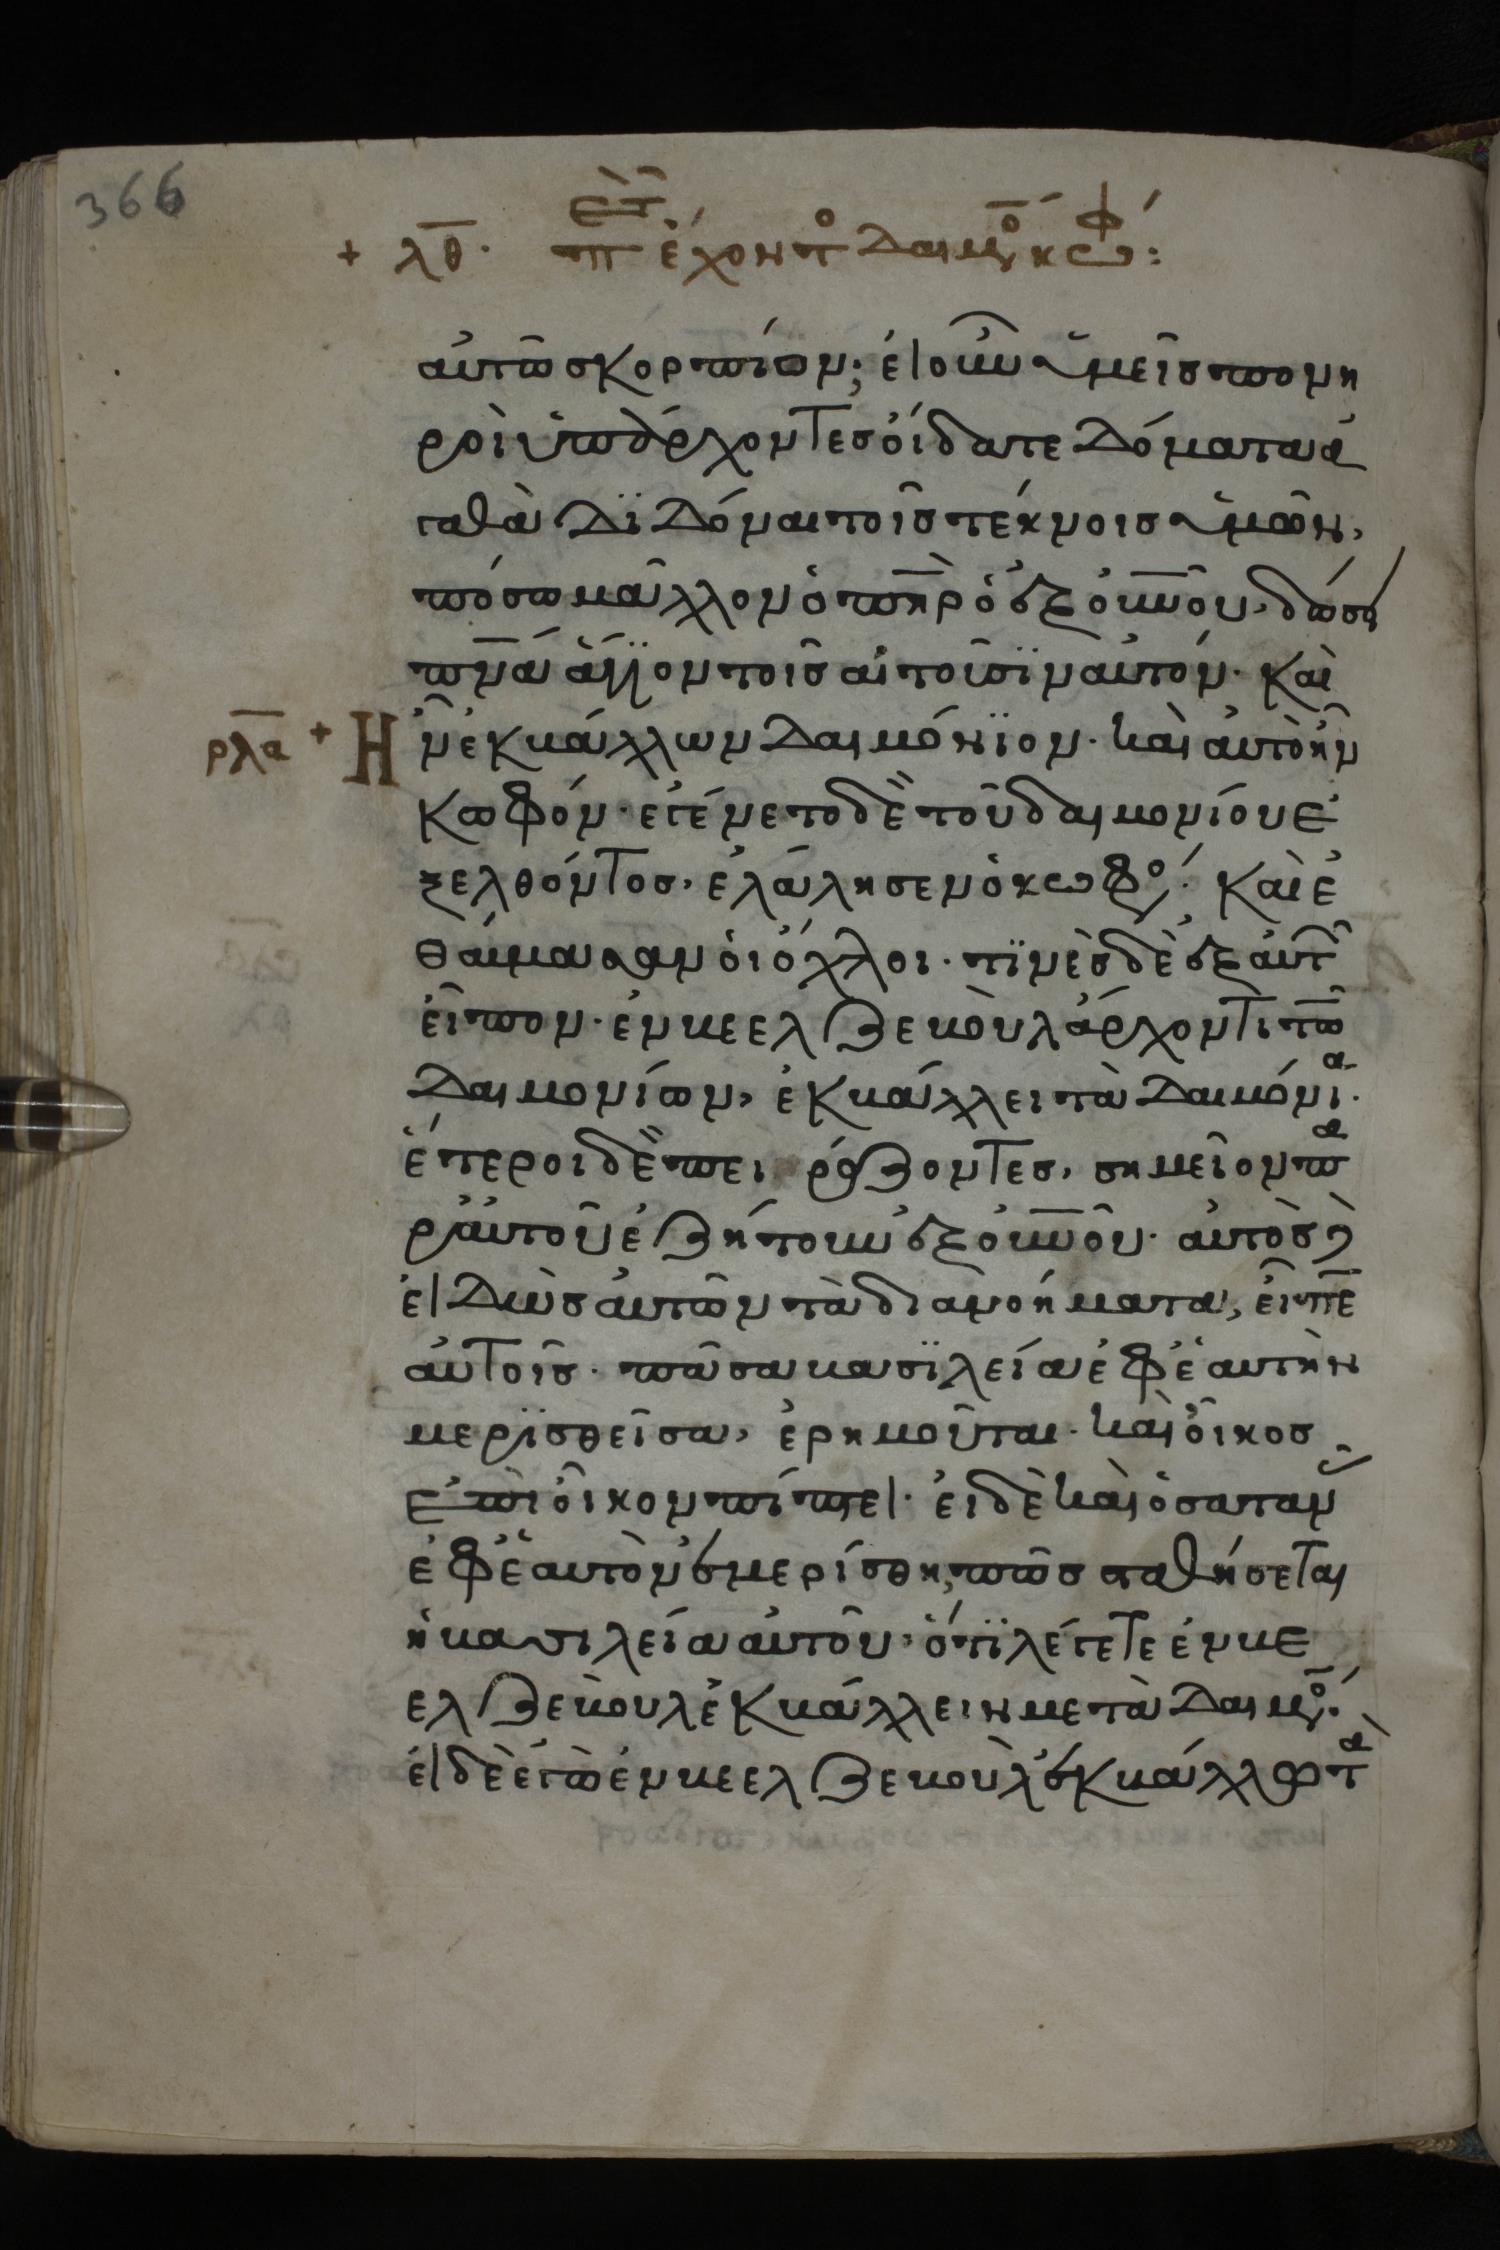 366
+ λθ· π ἔχοντ δαιμ κωφ:
αὐτῶ σκορπίον; εἰ οὖν ὑμεῖς πονη
ροὶ ὑπάρχοντες οἴδατε δόματα ἀ
γαθὰ διδόναι τοῖς τέκνοις ὑμῶν,
πόσω μᾶλλον ὁ πηρ ὁ ἐξ οὐνοῦ, δώσει
πνα ἅγιον τοῖς αἰτοῦσιν αὐτόν· Καὶ
ρλα + Η
ν ἐκβάλλων δαιμόνιον· καὶ αὐτὸ ἦν
κωφόν· ἐγένετο δὲ τοῦ δαιμονίου ἐ
ξελθόντος, ἐλάλησεν ὁ κωφο· Καὶ ἐ
θαύμασαν οἱ ὄχλοι· τινὲς δὲ ἐξ αὐτ
εἶπον· ἐν βεελζεβοὺλ ἄρχοντι τῶ
δαιμονίων, ἐκβάλλει τὰ δαιμόνια·
ἕτεροι δὲ πειράζοντες, σημεῖον πα
ρ αὐτοῦ ἐζήτουν ἐξ οὐνοῦ· αὐτὸς δὲ
εἰδὼς αὐτῶν τὰ διανοήματα, εἶπε
αὐτοῖς· πᾶσα βασιλεία ἐφ ἑαυτὴν
μερισθεῖσα, ἐρημοῦται· καὶ οἶκος
ἐπὶ οἶκον πίπτει· εἰ δὲ καὶ ὁ σατανᾶς
ἐφ ἑαυτὸν ἐμερίσθη, πῶς σταθήσεται
ἡ βασιλεία αὐτοῦ, ὅτι λέγετε ἐν βε
ελζεβοὺλ ἐκβάλλειν με τὰ δαιμο·
εἰ δὲ ἐγὼ ἐν βεελζεβοὺλ ἐκβάλλω τὰ